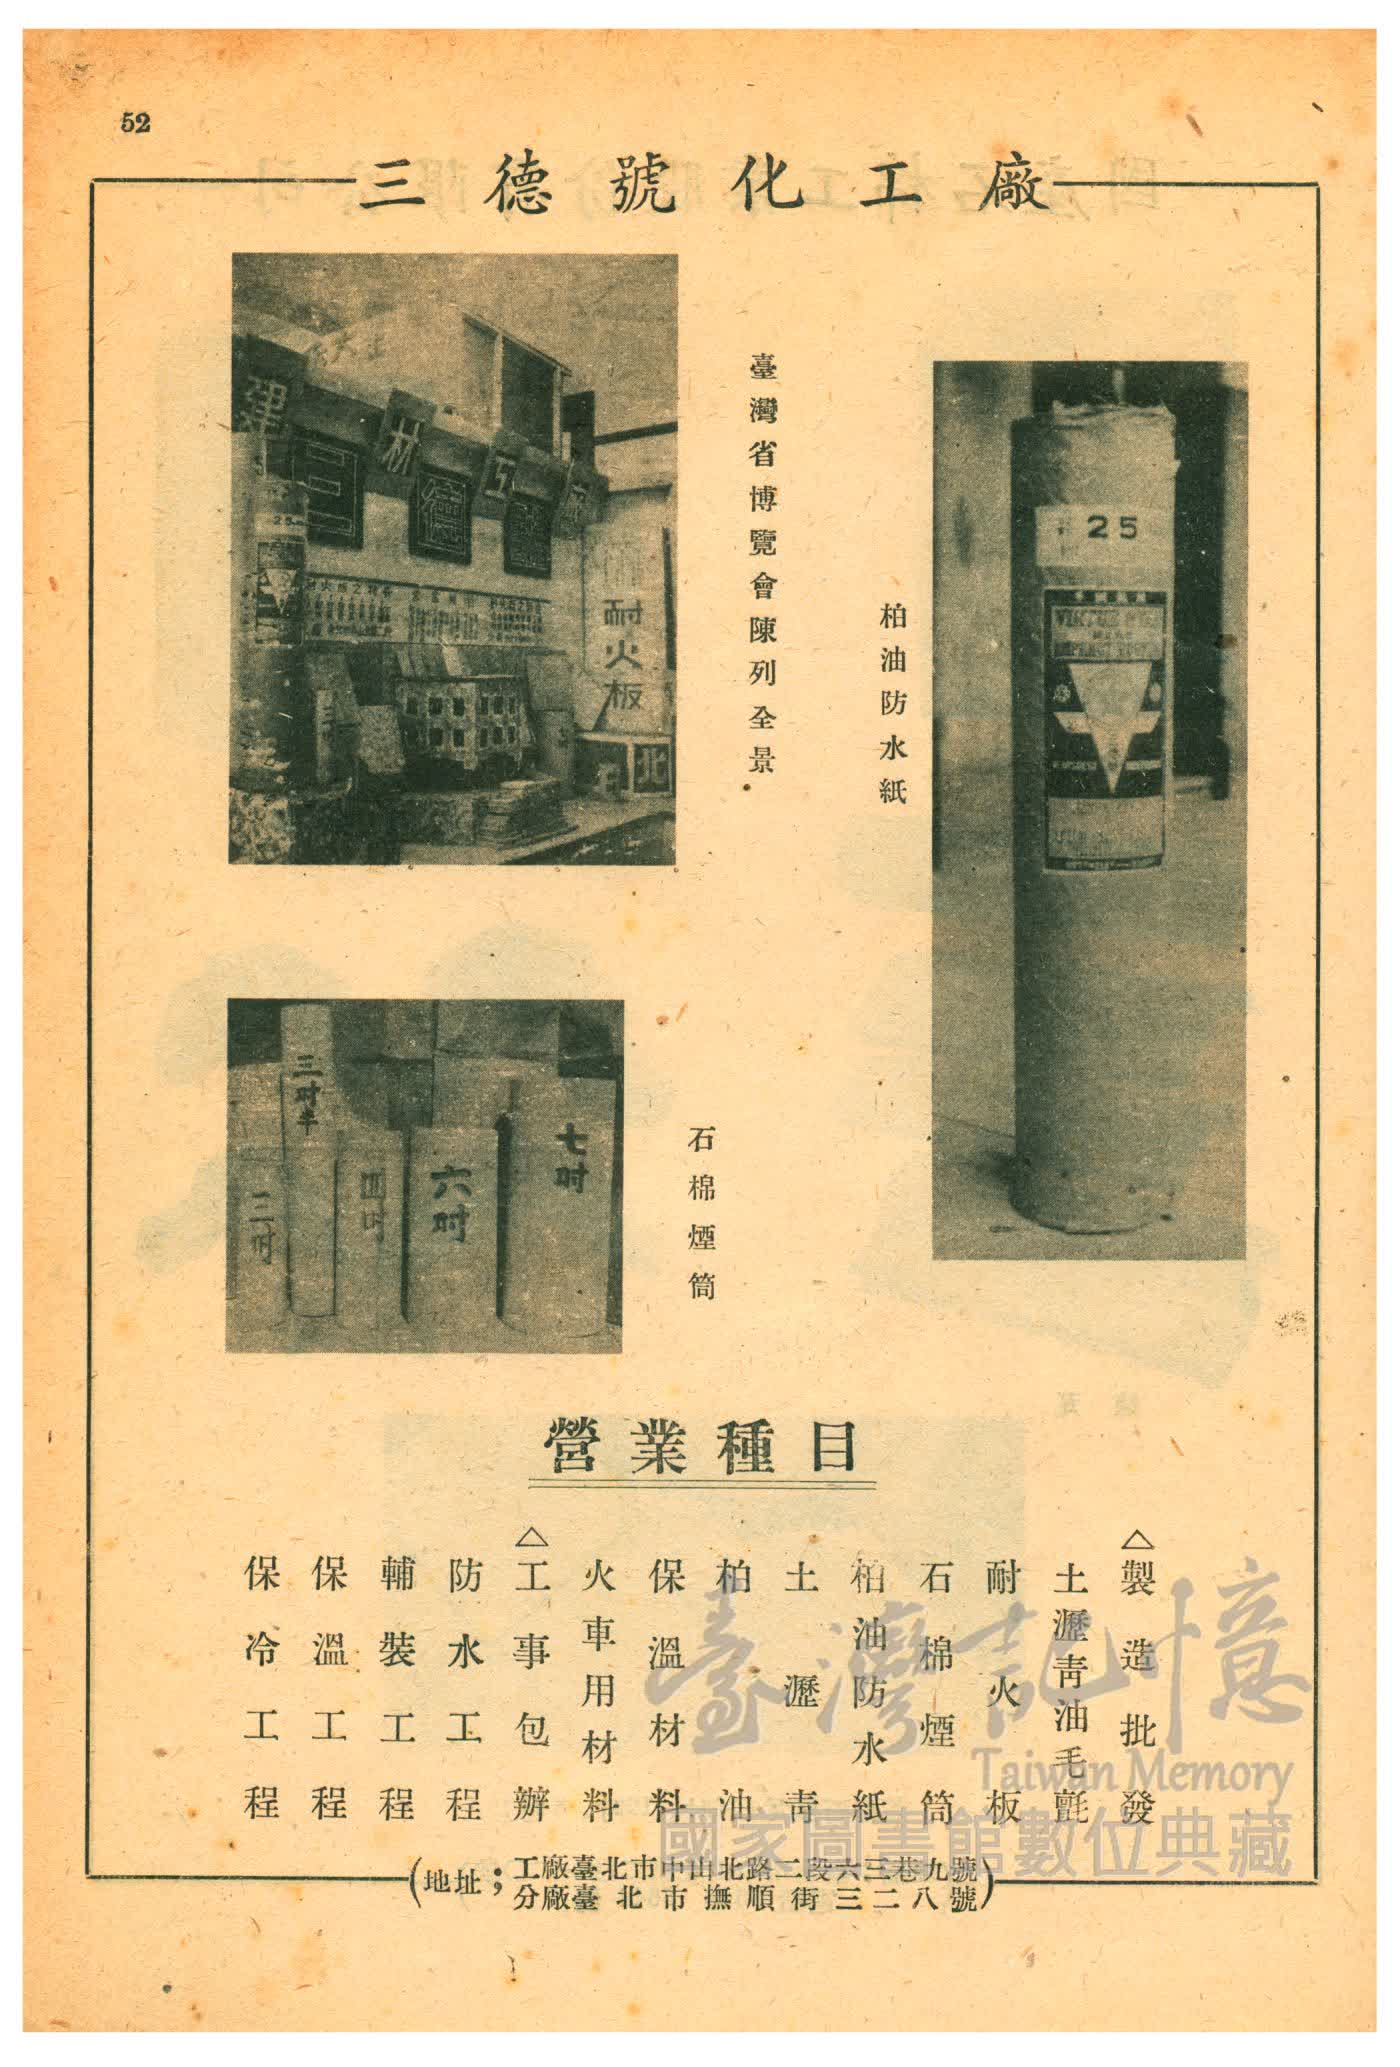 52
三德號化工廠
臺灣省博覽會陳列全景
柏油防水紙
25
建材
德
耐火板
北
石棉煙筒
三吋半
三吋
四吋
六吋
七吋
營業種目
△製造批發
土瀝青油毛氈
耐火板
石棉煙筒
柏油防水紙
土瀝青
柏油
保溫材料
火車用材料
△工事包辦
防水工程
輔裝工程
保溫工程
保冷工程
(地址；工廠臺北市中山北路二段六三巷九號
分廠臺北市撫順街三二八號)
臺灣記憶
Taiwan Memory
國家圖書館數位典藏